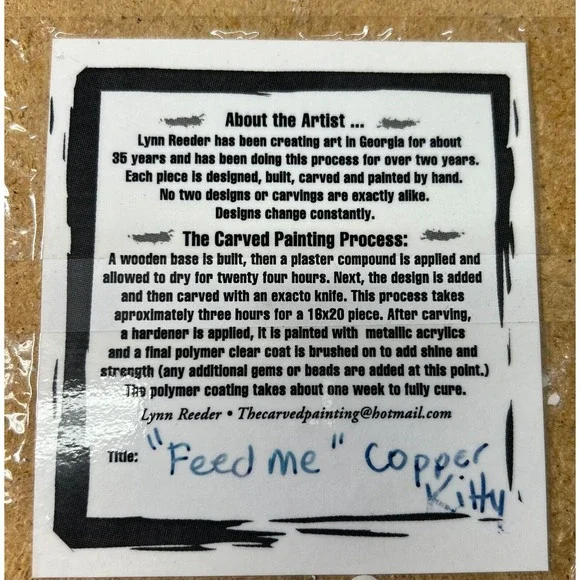 About the Artist ...
Lynn Reeder has been creating art in Georgia for about
35 years and has been doing this process for over two years.
Each piece is designed, built, carved and painted by hand.
No two designs or carvings are exactly alike.
Designs change constantly.
The Carved Painting Process:
A wooden base is built, then a plaster compound is applied and
allowed to dry for twenty four hours. Next, the design is added
and then carved with an exacto knife. This process takes
aproximately three hours for a 16x20 piece. After carving,
a hardener is applied, it is painted with metallic acrylics
and a final polymer clear coat is brushed on to add shine and
strength (any additional gems or beads are added at this point.)
The polymer coating takes about one week to fully cure.
Lynn Reeder • Thecarvedpainting@hotmail.com
Title: "Feed me" Copper
Kitty